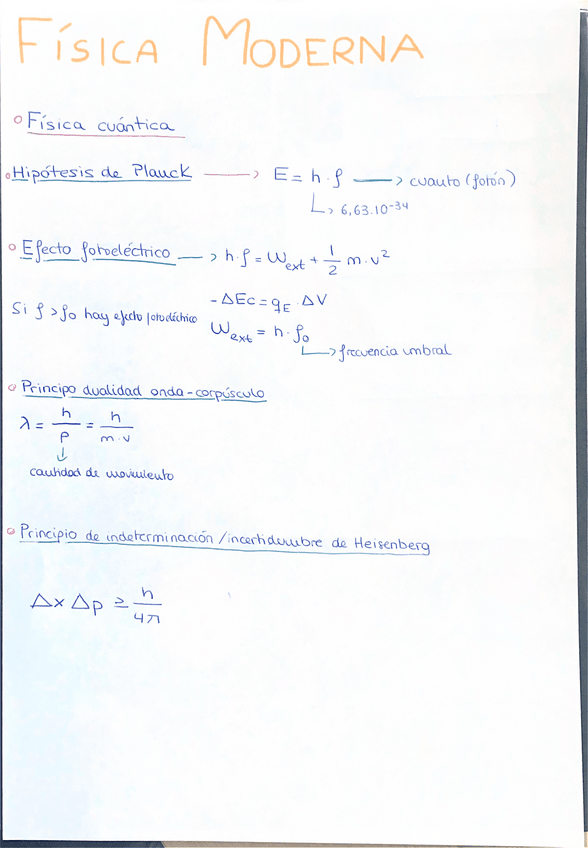 FÍSICA MODERNA
Física cuántica
Hipótesis de Planck → E = h · f → cuanto (fotón)
↳ 6,63.10⁻³⁴
Efecto fotoeléctrico → h · f = Wext + 1/2 m · v²
-ΔEc = qE · ΔV
Si f > f₀ hay efecto fotoeléctrico
Wext = h · f₀
↳ frecuencia umbral
Principo dualidad onda-corpúsculo
λ = h/p = h/m·v
↓
cantidad de movimiento
Principio de indeterminación / incertidumbre de Heisenberg
Δx Δp ≥ h/4π